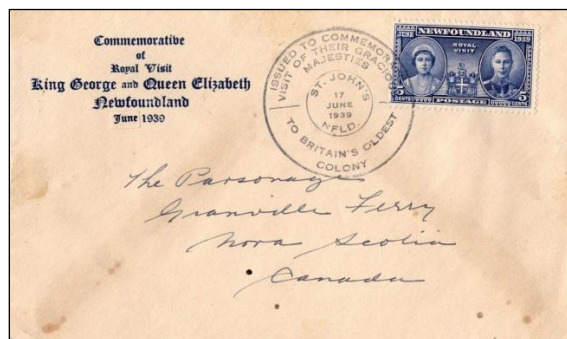 Commemorative
of
Royal Visit
King George and Queen Elizabeth
Newfoundland
June 1939
ISSUED TO COMMEMORATE
VISIT OF THEIR GRACIOUS
MAJESTIES
ST. JOHN'S
17
JUNE
1939
NFLD.
TO BRITAIN'S OLDEST
COLONY
JUNE NEWFOUNDLAND 1939
ROYAL
VISIT
5 CENTS POSTAGE 5 CENTS
The Parsonage
Granville Ferry
Nova Scotia
Canada